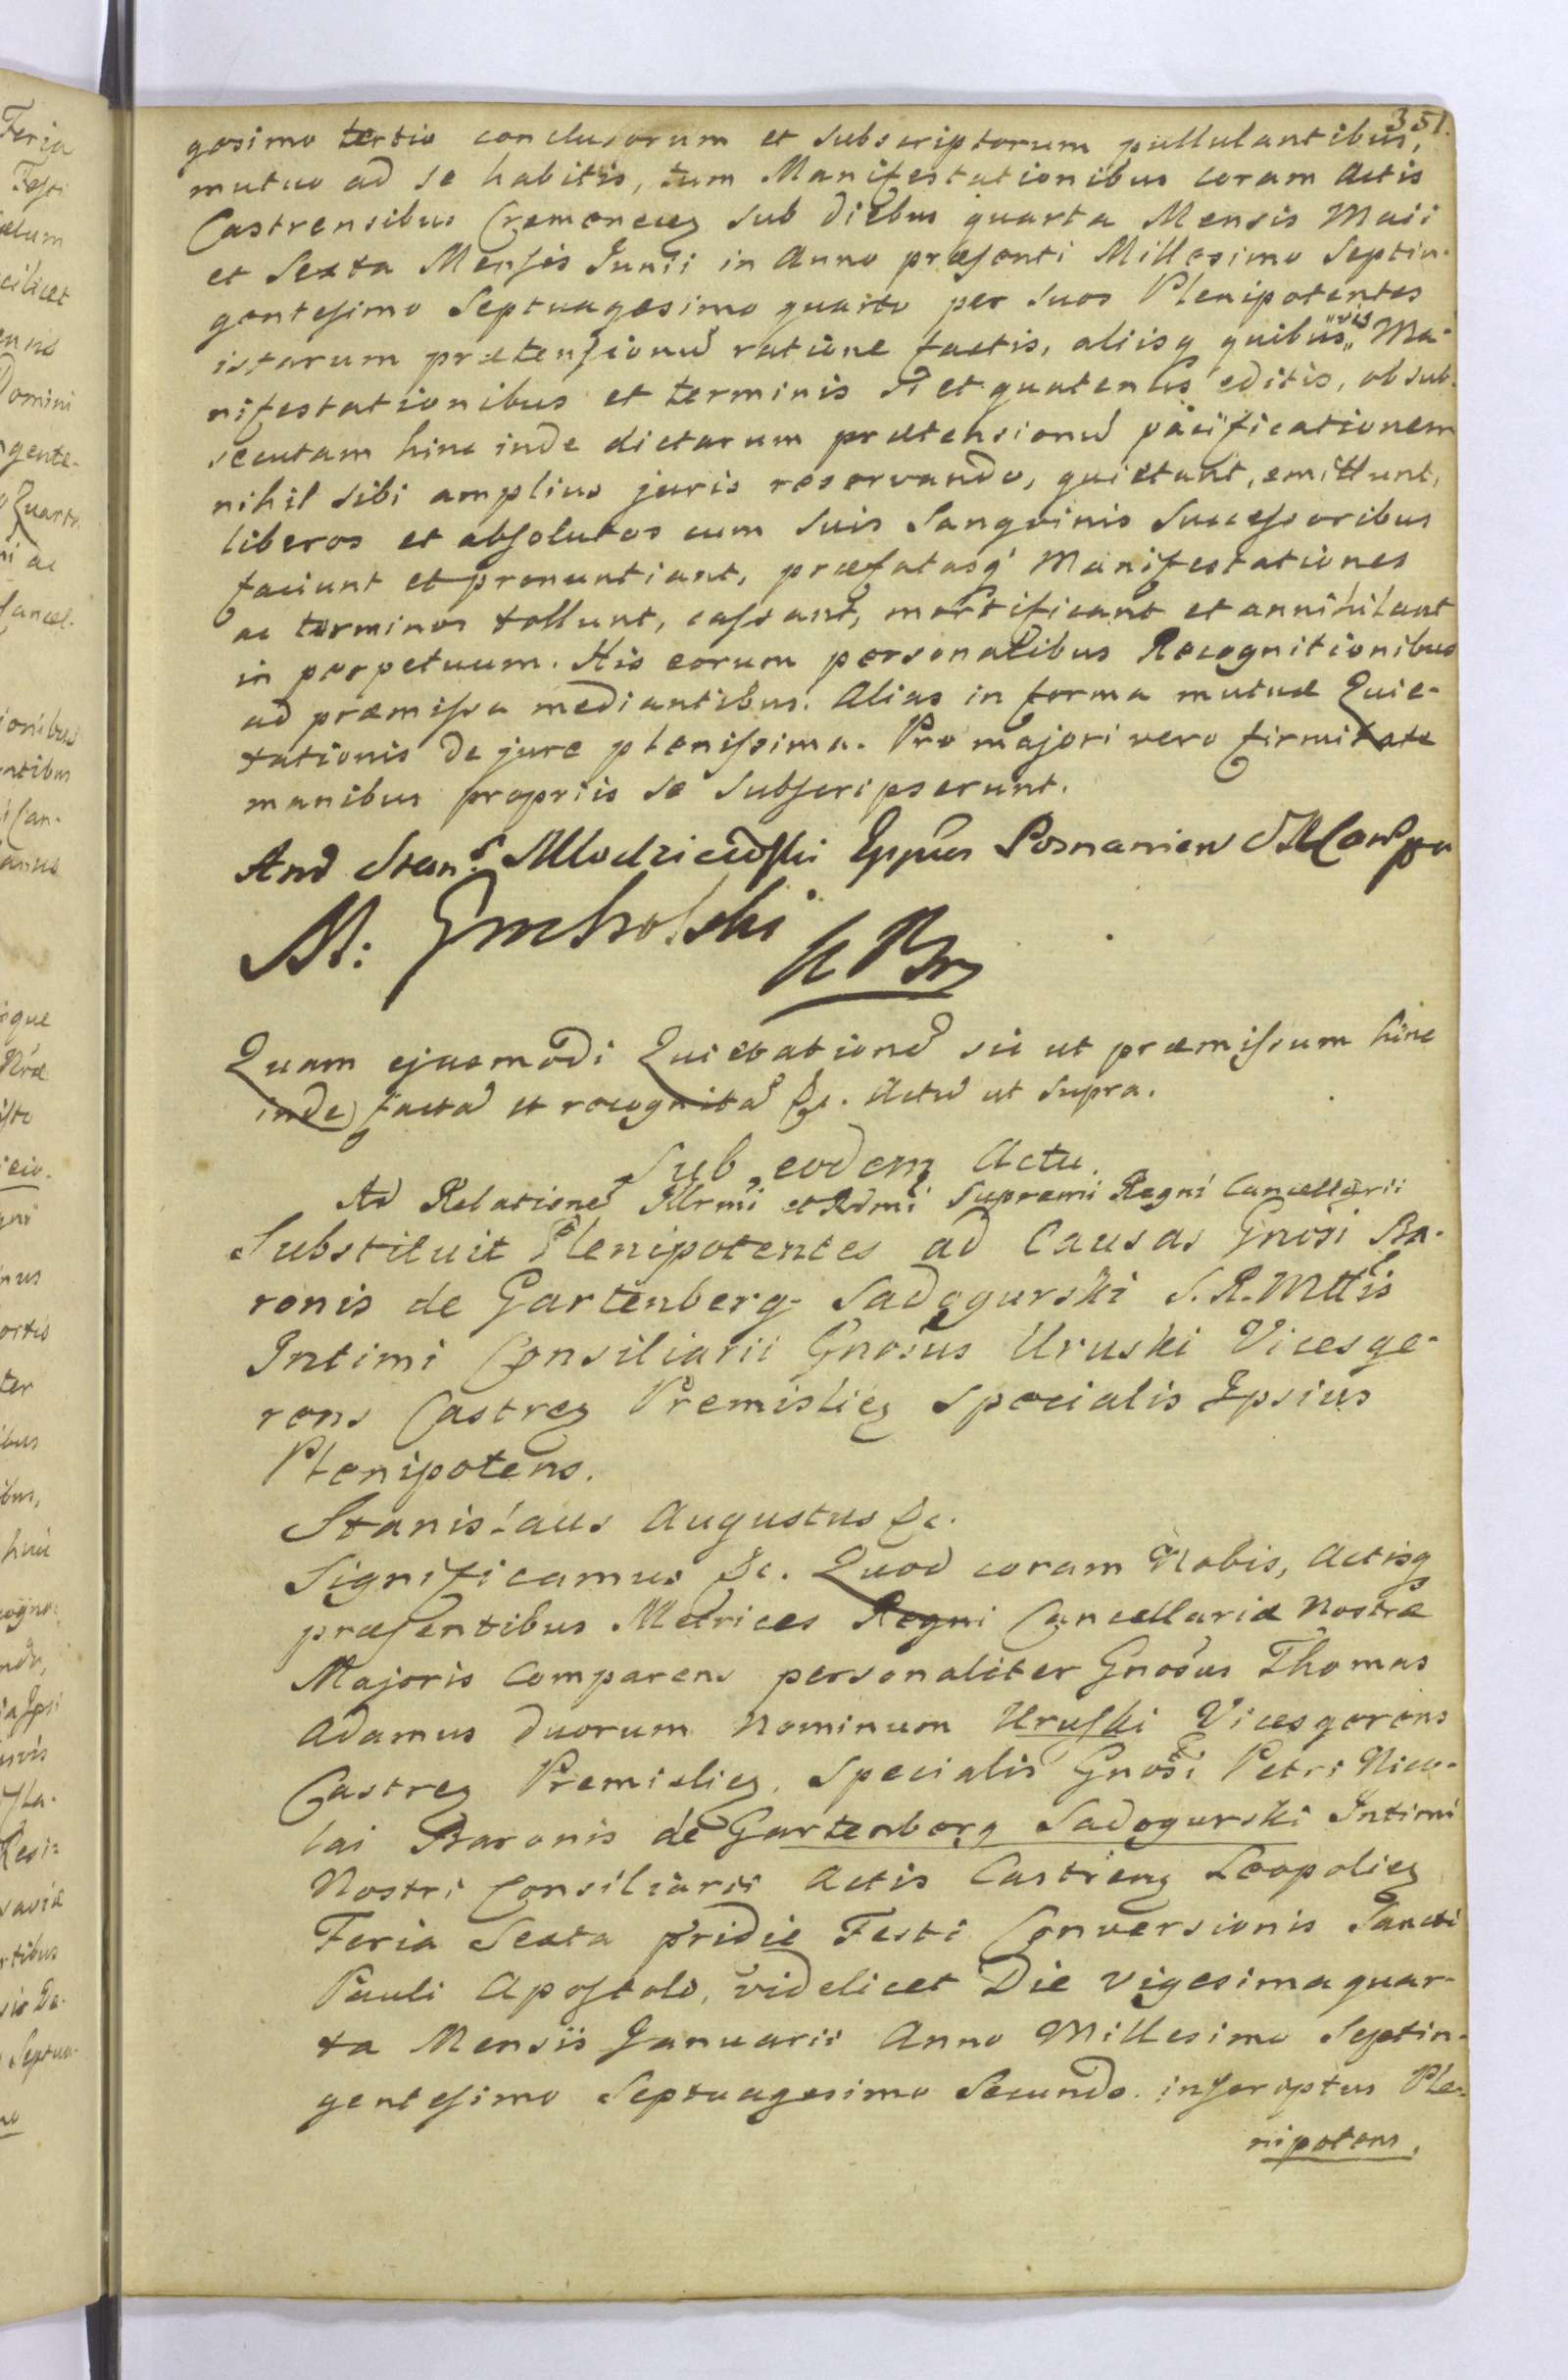 351.
gesimo tertio conclusorum et subscriptorum pullulantibus,
mutuo ad se habitis, tum Manifestationibus coram Actis
Castrensibus Cremenecen sub diebus quarta Mensis Maii
et Sexta Mensis Junii in Anno præsenti Millesimo Septin-
gentesimo Septuagesimo quarto per suos Plenipotentes
istarum prætensionũ ratione factis, aliisq quibusvis Ma-
nifestationibus et terminis si et quatenus editis, ob sub-
secutam hinc inde dictarum prætensionũ pacificationem
nihil sibi amplius juris reservando, quietant, emittunt,
liberos et absolutos cum suis Sanguinis Successoribus
faciunt et pronuntiant, præfatasq Manifestationes
ac terminos tollunt, cassant, mortificant et annihilant
in perpetuum. His eorum personalibus Recognitionibus
ad præmissa mediantibus. Alias in forma mutuæ Quie-
tationis de jure plenissima. Pro majori vero firmitate
manibus propriis se subscripserunt.
And Stan Mlodzieiowski Eppus Posnanien
M:
Quam ejusmodi Quietationẽ sic ut præmissum hinc
inde factã et recognitã &c. Actũ ut supra.
Sub eodem Actu.
Ad Relationẽ Illrmi et Rdmi Supremi Regni Cancellarii
Substituit Plenipotentes ad Causas Gnosi Ba-
ronis de Gartenberg Sadogurski S. R. Mttis
Intimi Consiliarii Gnosus Uruski Vicesge-
rens Castren Premislien specialis Ipsius
Plenipotens.
Stanislaus Augustus &c.
Significamus &c. Quod coram Nobis, Actisq
præsentibus Metrices Regni Cancellariæ Nostræ
Majoris Comparens personaliter Gnosus Thomas
Adamus duorum Nominum Uruski Vicesgerens
Castren Premislien. Specialis Gnosi Petri Nico-
lai Baronis de Gartenberg Sadogurski Intimi
Nostri Consiliarii Actis Castren Leopolien
Feria Sexta pridie Festi Conversionis Sancti
Pauli Apostolo, videlicet Die vigesima quar-
ta Mensis Januarii Anno Millesimo Septin-
gentesimo Septuagesimo Secundo. inscriptus Ple-
nipotens,